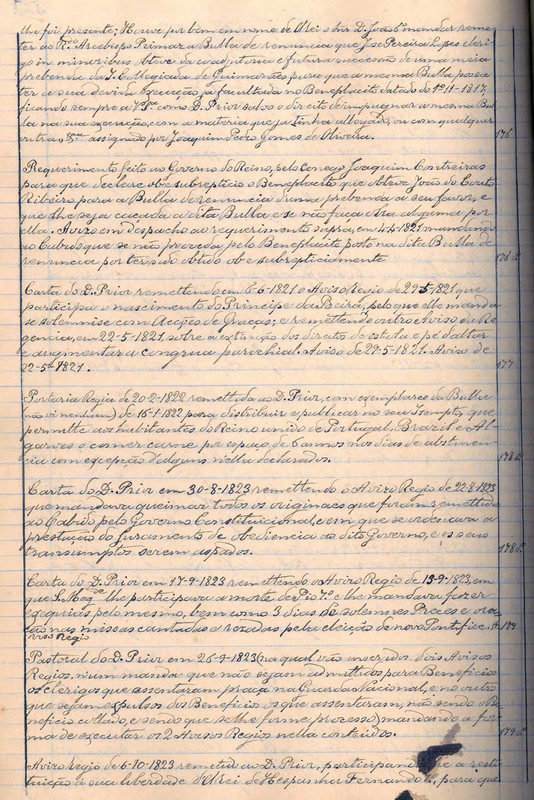 foi presente; Houve por bem em nome de Elrei o Snr D. João 6º mandar reme
ter ao R.º Arcebispo Primaz a Bulla de renuncia que José Pereira Lopes cleri
go in minoribus obteve da coadjutoria e futura successão de uma meia
prebenda da I. Collegiada de Guimarães para que a mesma Bulla possa
ter a sua devida execução, já facultada no Beneplacito datado do 1º-11-1817,
ficando sempre a V. S.ª como D. Prior salvo o direito de impugnar a mesma Bul
la na sua execução, com a materia que já tinha allegado, ou com qualquer
outra & assignado por Joaquim Pedro Gomes de Oliveira.
176
Requerimento feito ao Governo do Reino, pelo Conego Joaquim Contreiras
para que declare ob e subrepticio o Beneplacito que obteve João do Couto
Ribeiro para a Bulla de renuncia d'uma prebenda a seu favor, e
que lhe seja caçada a dita Bulla e se não faça obra alguma por
ella. Avizo em despacho ao requerimento supra, em 4-4-1821 mandando
ao Cabido que se não proceda pelo Beneplacito posto na dita Bulla de
renuncia por ter sido obtido ob e subrepticiamente
176 v.
Carta do D. Prior, remettendo em 6-6-1821 o Aviso Regio de 22-5-1821 que
participou o nascimento do Principe da Beira, pelo que elle manda
se solemnise com Acções de Graças; e remettendo outro Aviso da Re
gencia, em 22-5-1821 sobre a extincção dos direitos de estola e pé d'altar
e augmentar a congrua parochial. Aviso de 22-5-1821. Aviso de
22-5-1821.
177
Portaria Regia de 20-2-1822 remettida ao D. Prior, com exemplares da Bulla
(não vi nenhum) de 15-1-1822 para distribuir e publicar no seu Isempto, que
permitte aos habitantes do Reino unido de Portugal, Brazil e Al
garves o comer carne por espaço de 6 annos nos dias de abstinen
cia com excepção d'alguns n'ella declarados.
178 v.
Carta do D. Prior em 30-8-1823 remettendo o Avizo Regio de 22-8-1823
que mandava queimar todos os originaes que foram remettidos
ao Cabido pelo Governo Constituicional, e em que se ordenava a
prestação do juramento de obediencia ao dito Governo, e os seus
transumptos serem aspados.
178 v.
Carta do D. Prior em 17-9-1823 remettendo o Avizo Regio de 13-9-1823, em
que S. Mag.e lhe participava a morte de Pio 7.º e lhe mandava fazer
exequias pelo mesmo, bem como 3 dias de solemnes Preces e ora
ção nas missas cantadas e rezadas pela eleição de novo Pontifice.
Aviso Regio
179
Pastoral do D. Prior em 25-9-1823 (na qual vão inseridos dois Avisos
Regios, n'um manda que não sejam admittidos para Beneficios
os clerigos que assentaram praça na Guarda Nacional, e no outro
que sejam expulsos dos Beneficios os que assentaram, não sendo o Be
neficio collado, e sendo que se lhe forme processo) mandando a for
ma de executar os 2 Avisos Regios nella contidos.
179 v.
Avizo Regio de 6-10-1823 remettido ao D. Prior, participando que a resti
tuição á sua liberdade d'Elrei de Hespanha Fernando 7.º, para que